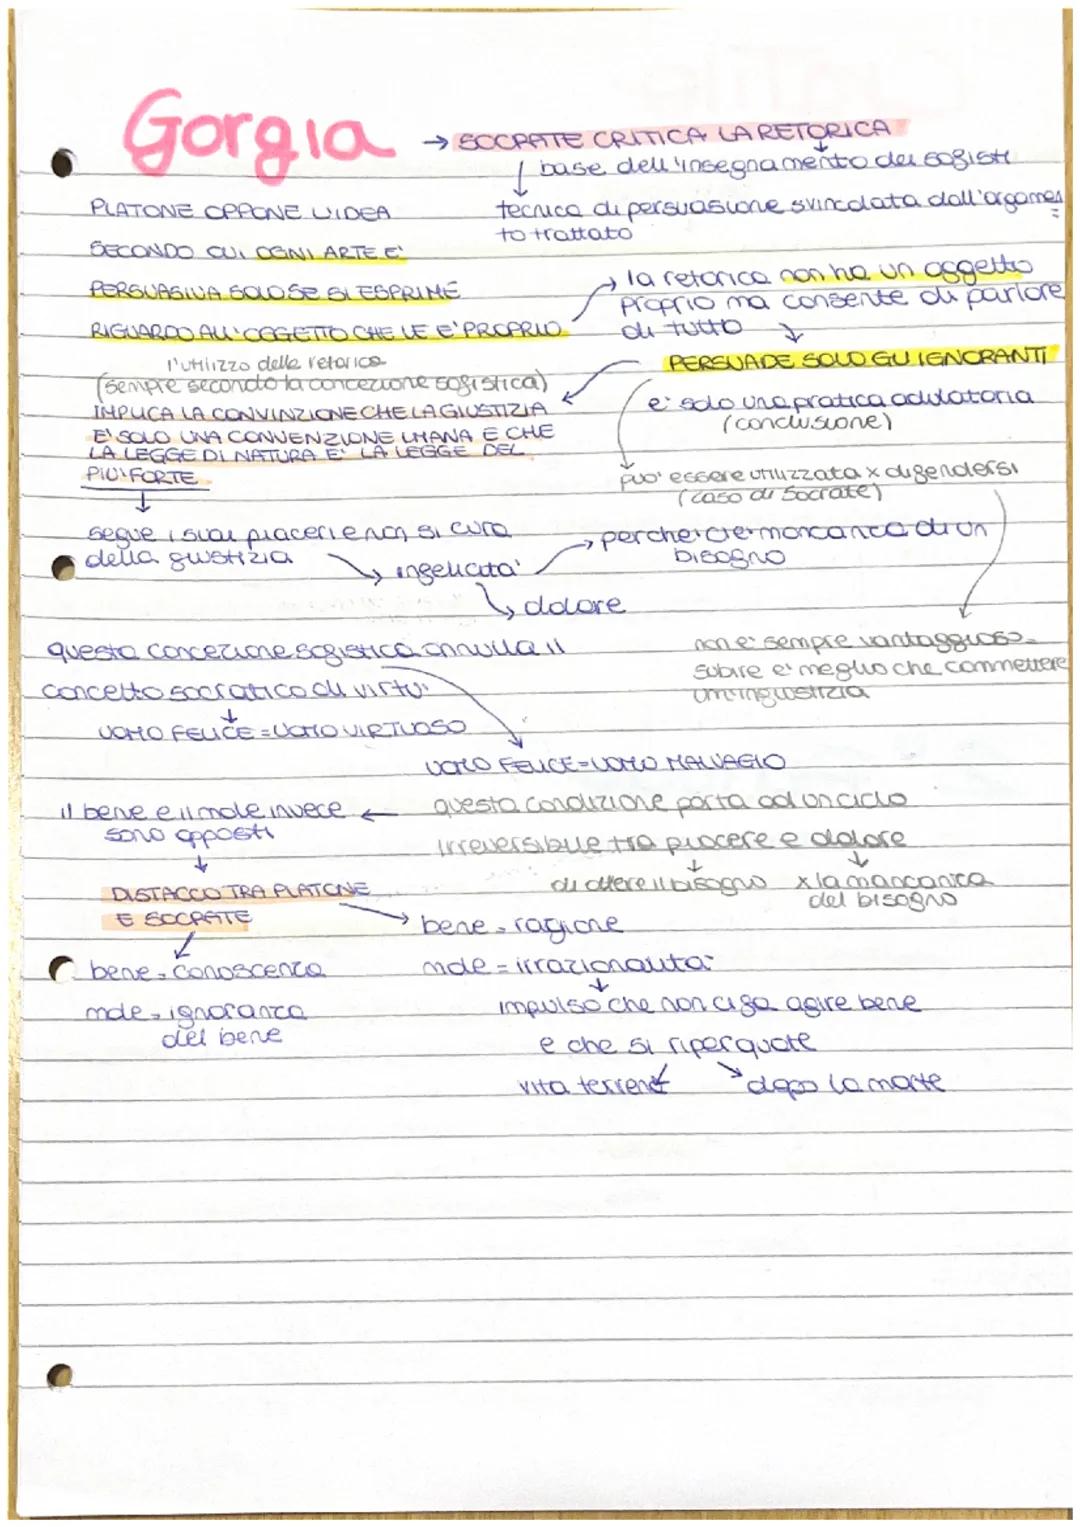 Gorgia → SOCRATE CRITICA LA RETORICA
base dell'insegnamento dei sofisti
tecnica di persuasione svincolata dall'argomen
to trattato
PLATONE OPPONE L'IDEA
SECONDO CUI OGNI ARTE E'
PERSUASIVA SOLO SE SI ESPRIME
RIGUARDO ALL'OGGETTO CHE LE E' PROPRIO
la retorica non ha un oggetto
proprio ma consente di parlare
di tutto
PERSUADE SOLO GLI IGNORANTI
l'utilizzo della retorica
(sempre secondo la concezione sofistica)
IMPLICA LA CONVINZIONE CHE LA GIUSTIZIA
E' SOLO UNA CONVENZIONE UMANA E CHE
LA LEGGE DI NATURA E' LA LEGGE DEL
PIU' FORTE
e' solo una pratica adulatoria
(conclusione)
puo' essere utilizzata x difendersi
(caso di Socrate)
segue i suoi piaceri e non si cura
della giustizia
infelicita'
perche' c'e' mancanza di un
bisogno
dolore
non e' sempre vantaggioso
subire e' meglio che commettere
un'ingiustizia
questa concezione sofistica annulla il
concetto socratico di virtu'
UOMO FELICE = UOMO VIRTUOSO
UOMO FELICE = UOMO MALVAGIO
questa condizione porta ad un ciclo
irreversibile tra piacere e dolore
di ottere il bisogno x la mancanza
del bisogno
il bene e il male invece ←
sono opposti
DISTACCO TRA PLATONE
E SOCRATE
bene = conoscenza
male = ignoranza
del bene
bene = ragione
male = irrazionalita'
impulso che non ci fa agire bene
e che si riperquote
vita terrena dopo la morte